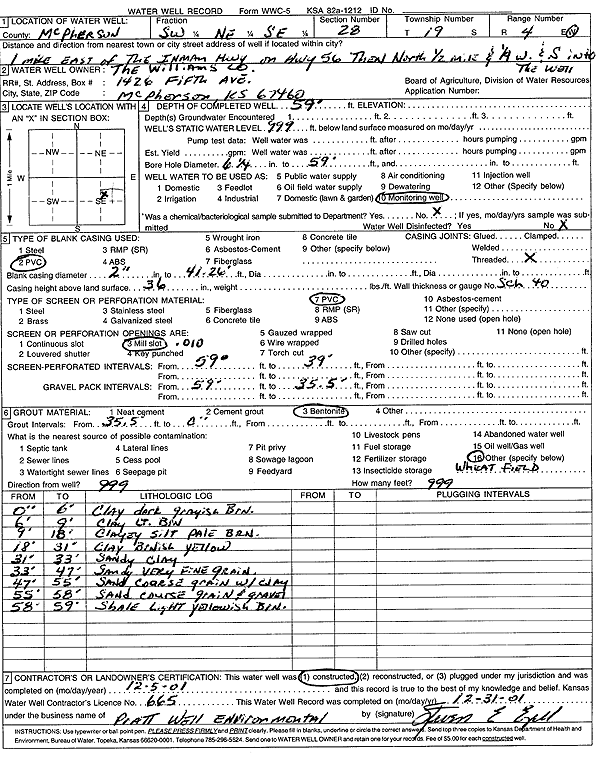 WATER WELL RECORD Form WWC-5 KSA 82a-1212 ID No.
1 LOCATION OF WATER WELL: Fraction Section Number Township Number Range Number
County: McPherson SW ¼ NE ¼ SE ¼ 28 T 19 S R 4 E W
Distance and direction from nearest town or city street address of well if located within city?
1 mile EAST of The Inman Hwy on Hwy 56 Then North 1/2 mile & W & S into
2 WATER WELL OWNER: The Williams Co. The Well
RR#, St. Address, Box # : 1426 Fifth Ave. Board of Agriculture, Division of Water Resources
City, State, ZIP Code : McPherson KS 67460 Application Number:
3 LOCATE WELL'S LOCATION WITH AN "X" IN SECTION BOX:
N
NW NE
W E
SW SE
X
S
1 Mile
4 DEPTH OF COMPLETED WELL 59' ft. ELEVATION:
Depth(s) Groundwater Encountered 1. ft. 2. ft. 3. ft.
WELL'S STATIC WATER LEVEL 999 ft. below land surface measured on mo/day/yr
Pump test data: Well water was ft. after hours pumping gpm
Est. Yield gpm: Well water was ft. after hours pumping gpm
Bore Hole Diameter 6 1/4 in. to 59' ft., and in. to ft.
WELL WATER TO BE USED AS: 5 Public water supply 8 Air conditioning 11 Injection well
1 Domestic 3 Feedlot 6 Oil field water supply 9 Dewatering 12 Other (Specify below)
2 Irrigation 4 Industrial 7 Domestic (lawn & garden) 10 Monitoring well
Was a chemical/bacteriological sample submitted to Department? Yes No X ; If yes, mo/day/yrs sample was submitted
Water Well Disinfected? Yes No X
5 TYPE OF BLANK CASING USED: 5 Wrought iron 8 Concrete tile CASING JOINTS: Glued Clamped
1 Steel 3 RMP (SR) 6 Asbestos-Cement 9 Other (specify below) Welded
2 PVC 4 ABS 7 Fiberglass Threaded X
Blank casing diameter 2" in. to 41.26' ft., Dia in. to ft., Dia in. to ft.
Casing height above land surface 36 in., weight lbs./ft. Wall thickness or gauge No. Sch. 40
TYPE OF SCREEN OR PERFORATION MATERIAL: 7 PVC 10 Asbestos-cement
1 Steel 3 Stainless steel 5 Fiberglass 8 RMP (SR) 11 Other (specify)
2 Brass 4 Galvanized steel 6 Concrete tile 9 ABS 12 None used (open hole)
SCREEN OR PERFORATION OPENINGS ARE: 5 Gauzed wrapped 8 Saw cut 11 None (open hole)
1 Continuous slot 3 Mill slot .010 6 Wire wrapped 9 Drilled holes
2 Louvered shutter 4 Key punched 7 Torch cut 10 Other (specify)
SCREEN-PERFORATED INTERVALS: From 59' ft. to 39' ft., From ft. to ft.
From ft. to ft., From ft. to ft.
GRAVEL PACK INTERVALS: From 59' ft. to 35.5' ft., From ft. to ft.
From ft. to ft., From ft. to ft.
6 GROUT MATERIAL: 1 Neat cement 2 Cement grout 3 Bentonite 4 Other
Grout Intervals: From 35.5 ft. to 0" ft., From ft. to ft., From ft. to ft.
What is the nearest source of possible contamination: 10 Livestock pens 14 Abandoned water well
1 Septic tank 4 Lateral lines 7 Pit privy 11 Fuel storage 15 Oil well/Gas well
2 Sewer lines 5 Cess pool 8 Sewage lagoon 12 Fertilizer storage 16 Other (specify below)
3 Watertight sewer lines 6 Seepage pit 9 Feedyard 13 Insecticide storage Wheat Field
Direction from well? 999 How many feet? 999
FROM TO LITHOLOGIC LOG FROM TO PLUGGING INTERVALS
0" 6' Clay dark grayish Brn.
6' 9' Clay Lt. Brn
9' 18' Clayey silt pale Brn.
18' 31' Clay Brnish yellow
31' 33' Sandy Clay
33' 47' Sandy very fine grain.
47' 55' Sand coarse grain w/clay
55' 58' Sand course grain & gravel
58' 59' Shale light yellowish Brn.
7 CONTRACTOR'S OR LANDOWNER'S CERTIFICATION: This water well was (1) constructed, (2) reconstructed, or (3) plugged under my jurisdiction and was
completed on (mo/day/year) 12-5-01 and this record is true to the best of my knowledge and belief. Kansas
Water Well Contractor's Licence No. 665 This Water Well Record was completed on (mo/day/yr) 12-31-01
under the business name of Pratt Well Environmental by (signature)
INSTRUCTIONS: Use typewriter or ball point pen. PLEASE PRESS FIRMLY and PRINT clearly. Please fill in blanks, underline or circle the correct answers. Send top three copies to Kansas Department of Health and
Environment, Bureau of Water, Topeka, Kansas 66620-0001. Telephone 785-296-5524. Send one to WATER WELL OWNER and retain one for your records. Fee of $5.00 for each constructed well.